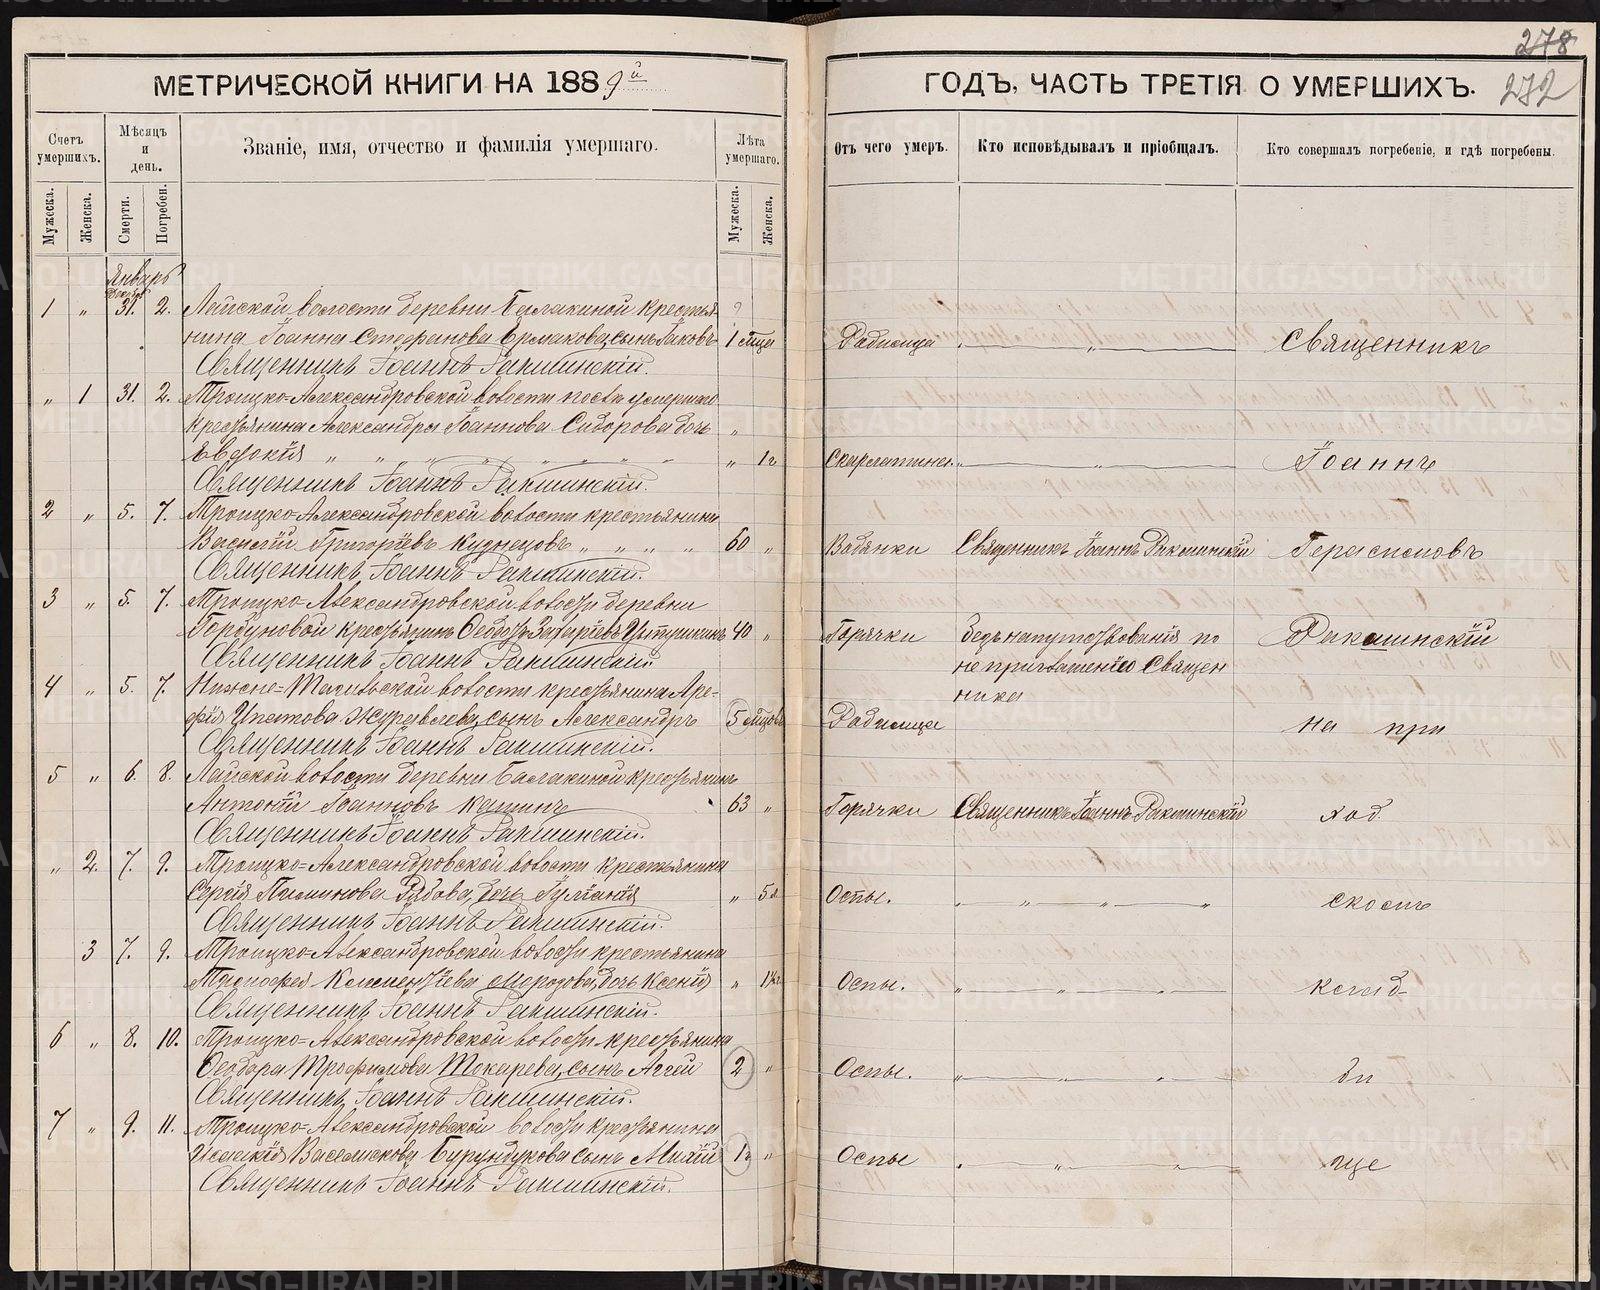 278
272
МЕТРИЧЕСКОЙ КНИГИ НА 1889й
ГОДЪ, ЧАСТЬ ТРЕТІЯ О УМЕРШИХЪ.
Счетъ умершихъ.
Мѣсяцъ и день.
Званіе, имя, отчество и фамилія умершаго.
Лѣта умершаго.
Отъ чего умеръ.
Кто исповѣдывалъ и пріобщалъ.
Кто совершалъ погребеніе, и гдѣ погребены.
Мужеска.
Женска.
Смерти.
Погребен.
Мужеска.
Женска.
Январь
Декабря
1 " 31. 2. Лайской волости деревни Балакиной крестья-
нина Іоанна Стефанова Ермакова, сынъ Іаковъ 1 мца Родимца Священникъ
Священникъ Іоаннъ Ракшинскій.
" 1 31. 2. Троицко=Александровской волости послѣ умершаго
крестьянина Александра Іоаннова Сидорова дочь
Евдокія " 1 г Скарлатины Іоаннъ
Священникъ Іоаннъ Ракшинскій.
2 " 5. 7. Троицко=Александровской волости крестьянинъ
Василій Григорьевъ Кузнецовъ 60 " Водянки Священникъ Іоаннъ Ракшинскій Герасимовъ
Священникъ Іоаннъ Ракшинскій.
3 " 5. 7. Троицко=Александровской волости деревни
Горбуновой крестьянинъ Ѳеодоръ Захаріевъ 40 " Горячки безъ напутствованія по Ракшинскій
Священникъ Іоаннъ Ракшинскій не приглашенію Священ
4 " 5. 7. Нижне=Тагильской волости крестьянина Аре- ника
фія Ипатова Журавлева, сынъ Александръ 5 мцовъ Родимца на при
Священникъ Іоаннъ Ракшинскій.
5 " 6. 8. Лайской волости деревни Балакиной крестьянинъ
Антоній Іоанновъ 63 " Горячки Священникъ Іоаннъ Ракшинскій ход
Священникъ Іоаннъ Ракшинскій.
" 2. 7. 9. Троицко=Александровской волости крестьянина
Сергія Пименова Рябова, дочь Іуліанія " 5 Оспы. скомъ
Священникъ Іоаннъ Ракшинскій.
3 7. 9. Троицко=Александровской волости крестьянина
Климентіева Морозова, дочь Ксенія " Оспы. клад-
Священникъ Іоаннъ Ракшинскій.
6 " 8. 10. Троицко=Александровской волости крестьянина
Ѳеодора Трофимова Токарева, сынъ Аггей 2 " Оспы. би
Священникъ Іоаннъ Ракшинскій.
7 " 9. 11. Троицко=Александровской волости крестьянина
Бурундукова сынъ 1 г " Оспы ще
Священникъ Іоаннъ Ракшинскій.
METRIKI.GASO-URAL.RU